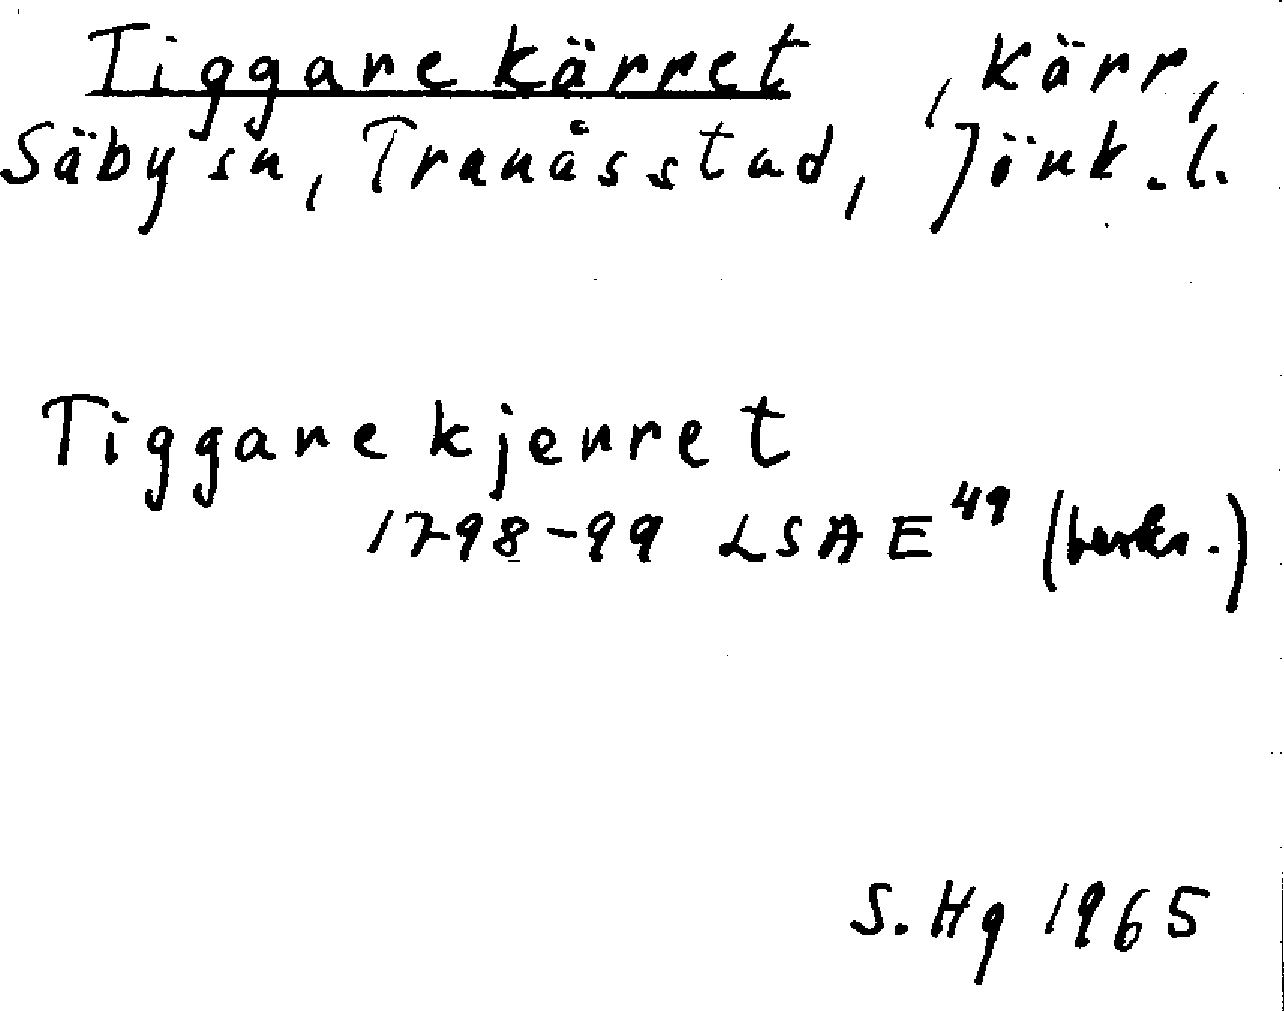 Tiggarekärret, kärr,
Säby sn, Tranås stad, Jönk. l.
Tiggare kjerret
1798-99 LSA E⁴⁹ (beskr.)
S. Hg 1965